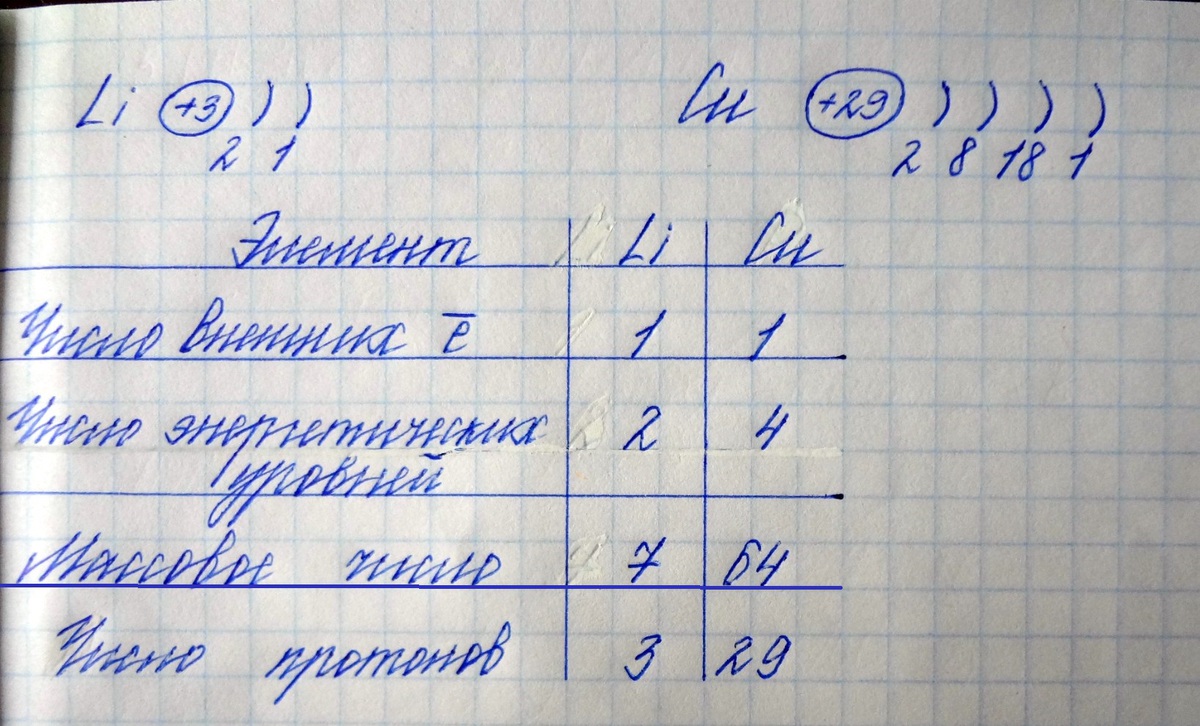 Li +3 ) )
2 1
Cu +29 ) ) ) )
2 8 18 1
Элемент Li Cu
Число внешних e̅ 1 1
Число энергетических 2 4
уровней
Массовое число 7 64
Число протонов 3 29